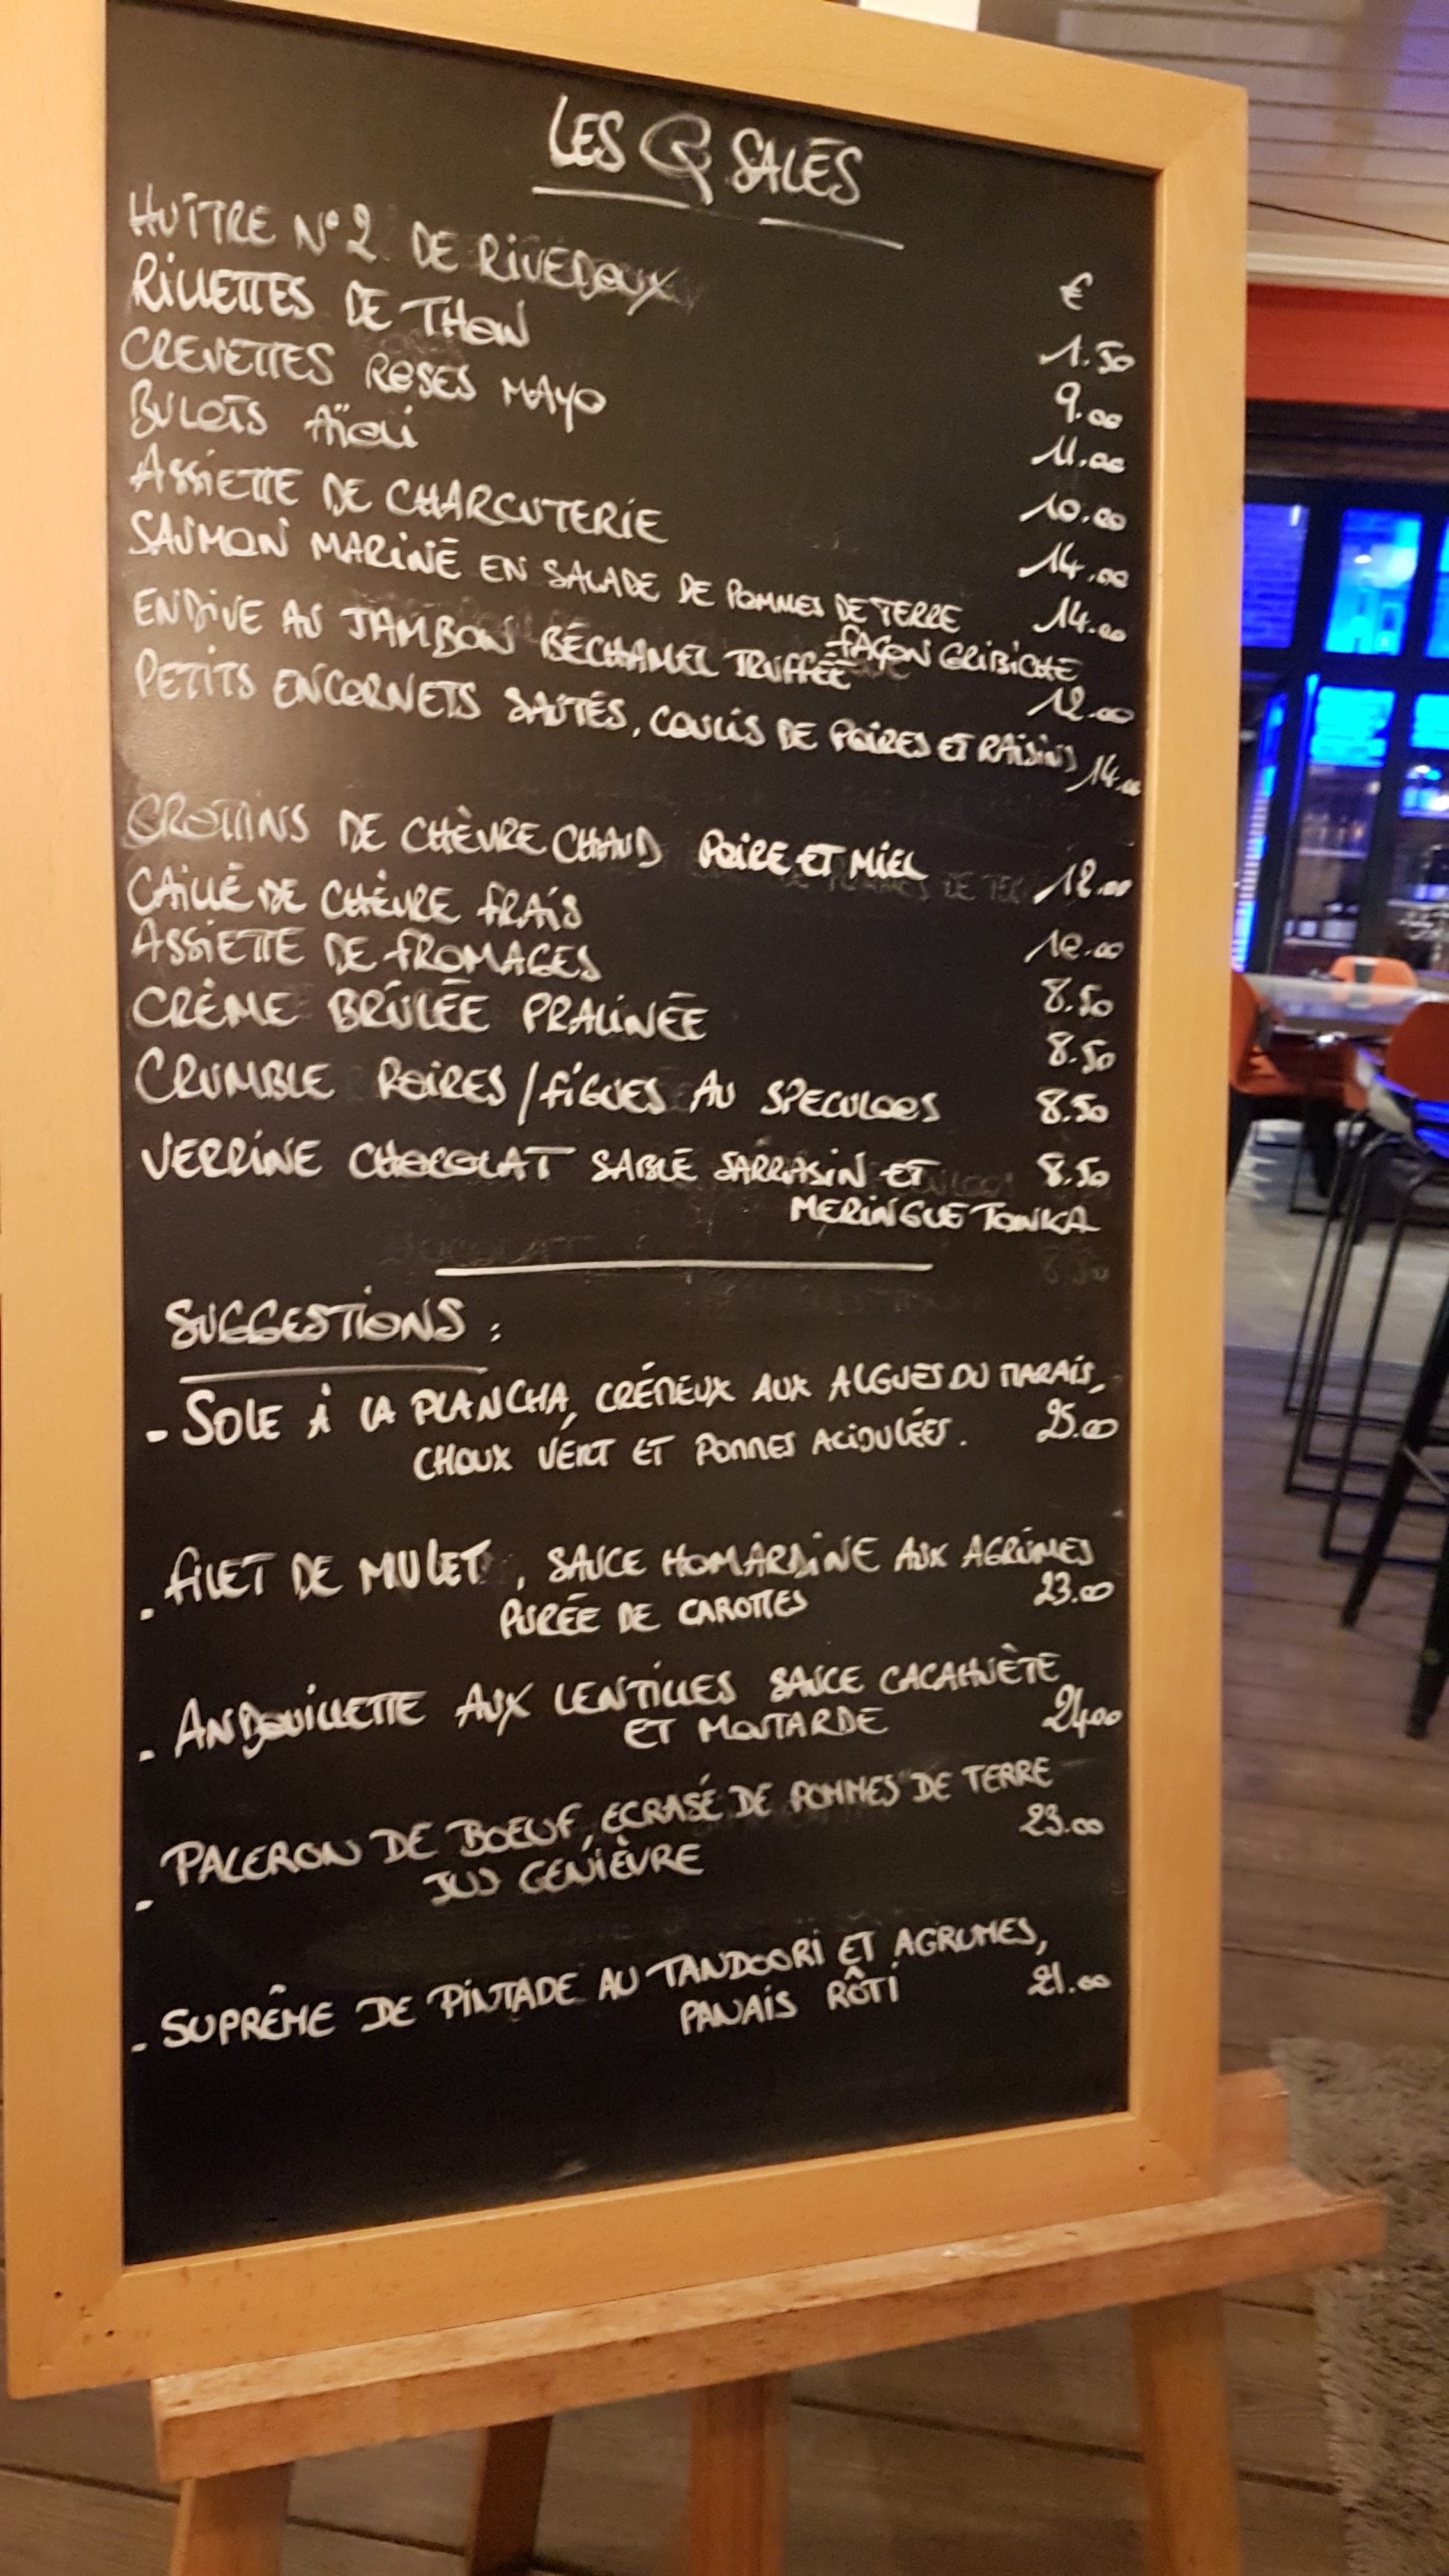 LES Q SALÉS
€
HUÎTRE N°2 DE RIVEDOUX 1.50
RILLETTES DE THON 9.00
CREVETTES ROSES MAYO 11.00
BULOTS AÏOLI 10.00
ASSIETTE DE CHARCUTERIE 14.00
SAUMON MARINÉ EN SALADE DE POMMES DE TERRE 14.00
FAÇON GRIBICHE
ENDIVE AU JAMBON BÉCHAMEL TRUFFÉE 12.00
PETITS ENCORNETS SAUTÉS, COULIS DE POIRES ET RAISINS 14.00
CROTTINS DE CHÈVRE CHAUD POIRE ET MIEL 12.00
CAILLÉ DE CHÈVRE FRAIS
ASSIETTE DE FROMAGES 8.50
CRÈME BRÛLÉE PRALINÉE 8.50
CRUMBLE POIRES/FIGUES AU SPECULOOS 8.50
VERRINE CHOCOLAT SABLÉ SARRASIN ET 8.50
MERINGUE TONKA
SUGGESTIONS :
- SOLE À LA PLANCHA, CRÉMEUX AUX ALGUES DU MARAIS,
CHOUX VERT ET POMMES ACIDULÉES. 25.00
- FILET DE MULET, SAUCE HOMARDINE AUX AGRUMES
PURÉE DE CAROTTES 23.00
- ANDOUILLETTE AUX LENTILLES SAUCE CACAHUÈTE
ET MOUTARDE 24.00
- PALERON DE BOEUF, ECRASÉ DE POMMES DE TERRE
JUS GENIÈVRE 23.00
- SUPRÊME DE PINTADE AU TANDOORI ET AGRUMES,
PANAIS RÔTI 21.00